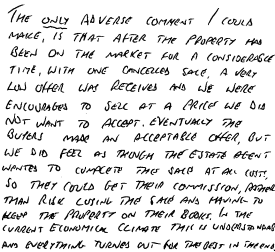 THE ONLY ADVERSE COMMENT I COULD
MAKE, IS THAT AFTER THE PROPERTY HAD
BEEN ON THE MARKET FOR A CONSIDERABLE
TIME, WITH ONE CANCELLED SALE, A VERY
LOW OFFER WAS RECEIVED AND WE WERE
ENCOURAGED TO SELL AT A PRICE WE DID
NOT WANT TO ACCEPT. EVENTUALLY THE
BUYERS MADE AN ACCEPTABLE OFFER, BUT
WE DID FEEL AS THOUGH THE ESTATE AGENT
WANTED TO COMPLETE THE SALE AT ALL COST,
SO THEY COULD GET THEIR COMMISSION, RATHER
THAN RISK LOSING THE SALE AND HAVING TO
KEEP THE PROPERTY ON THEIR BOOKS. IN THE
CURRENT ECONOMICAL CLIMATE THIS IS UNDERSTANDABLE
AND EVERYTHING TURNED OUT FOR THE BEST IN THE END